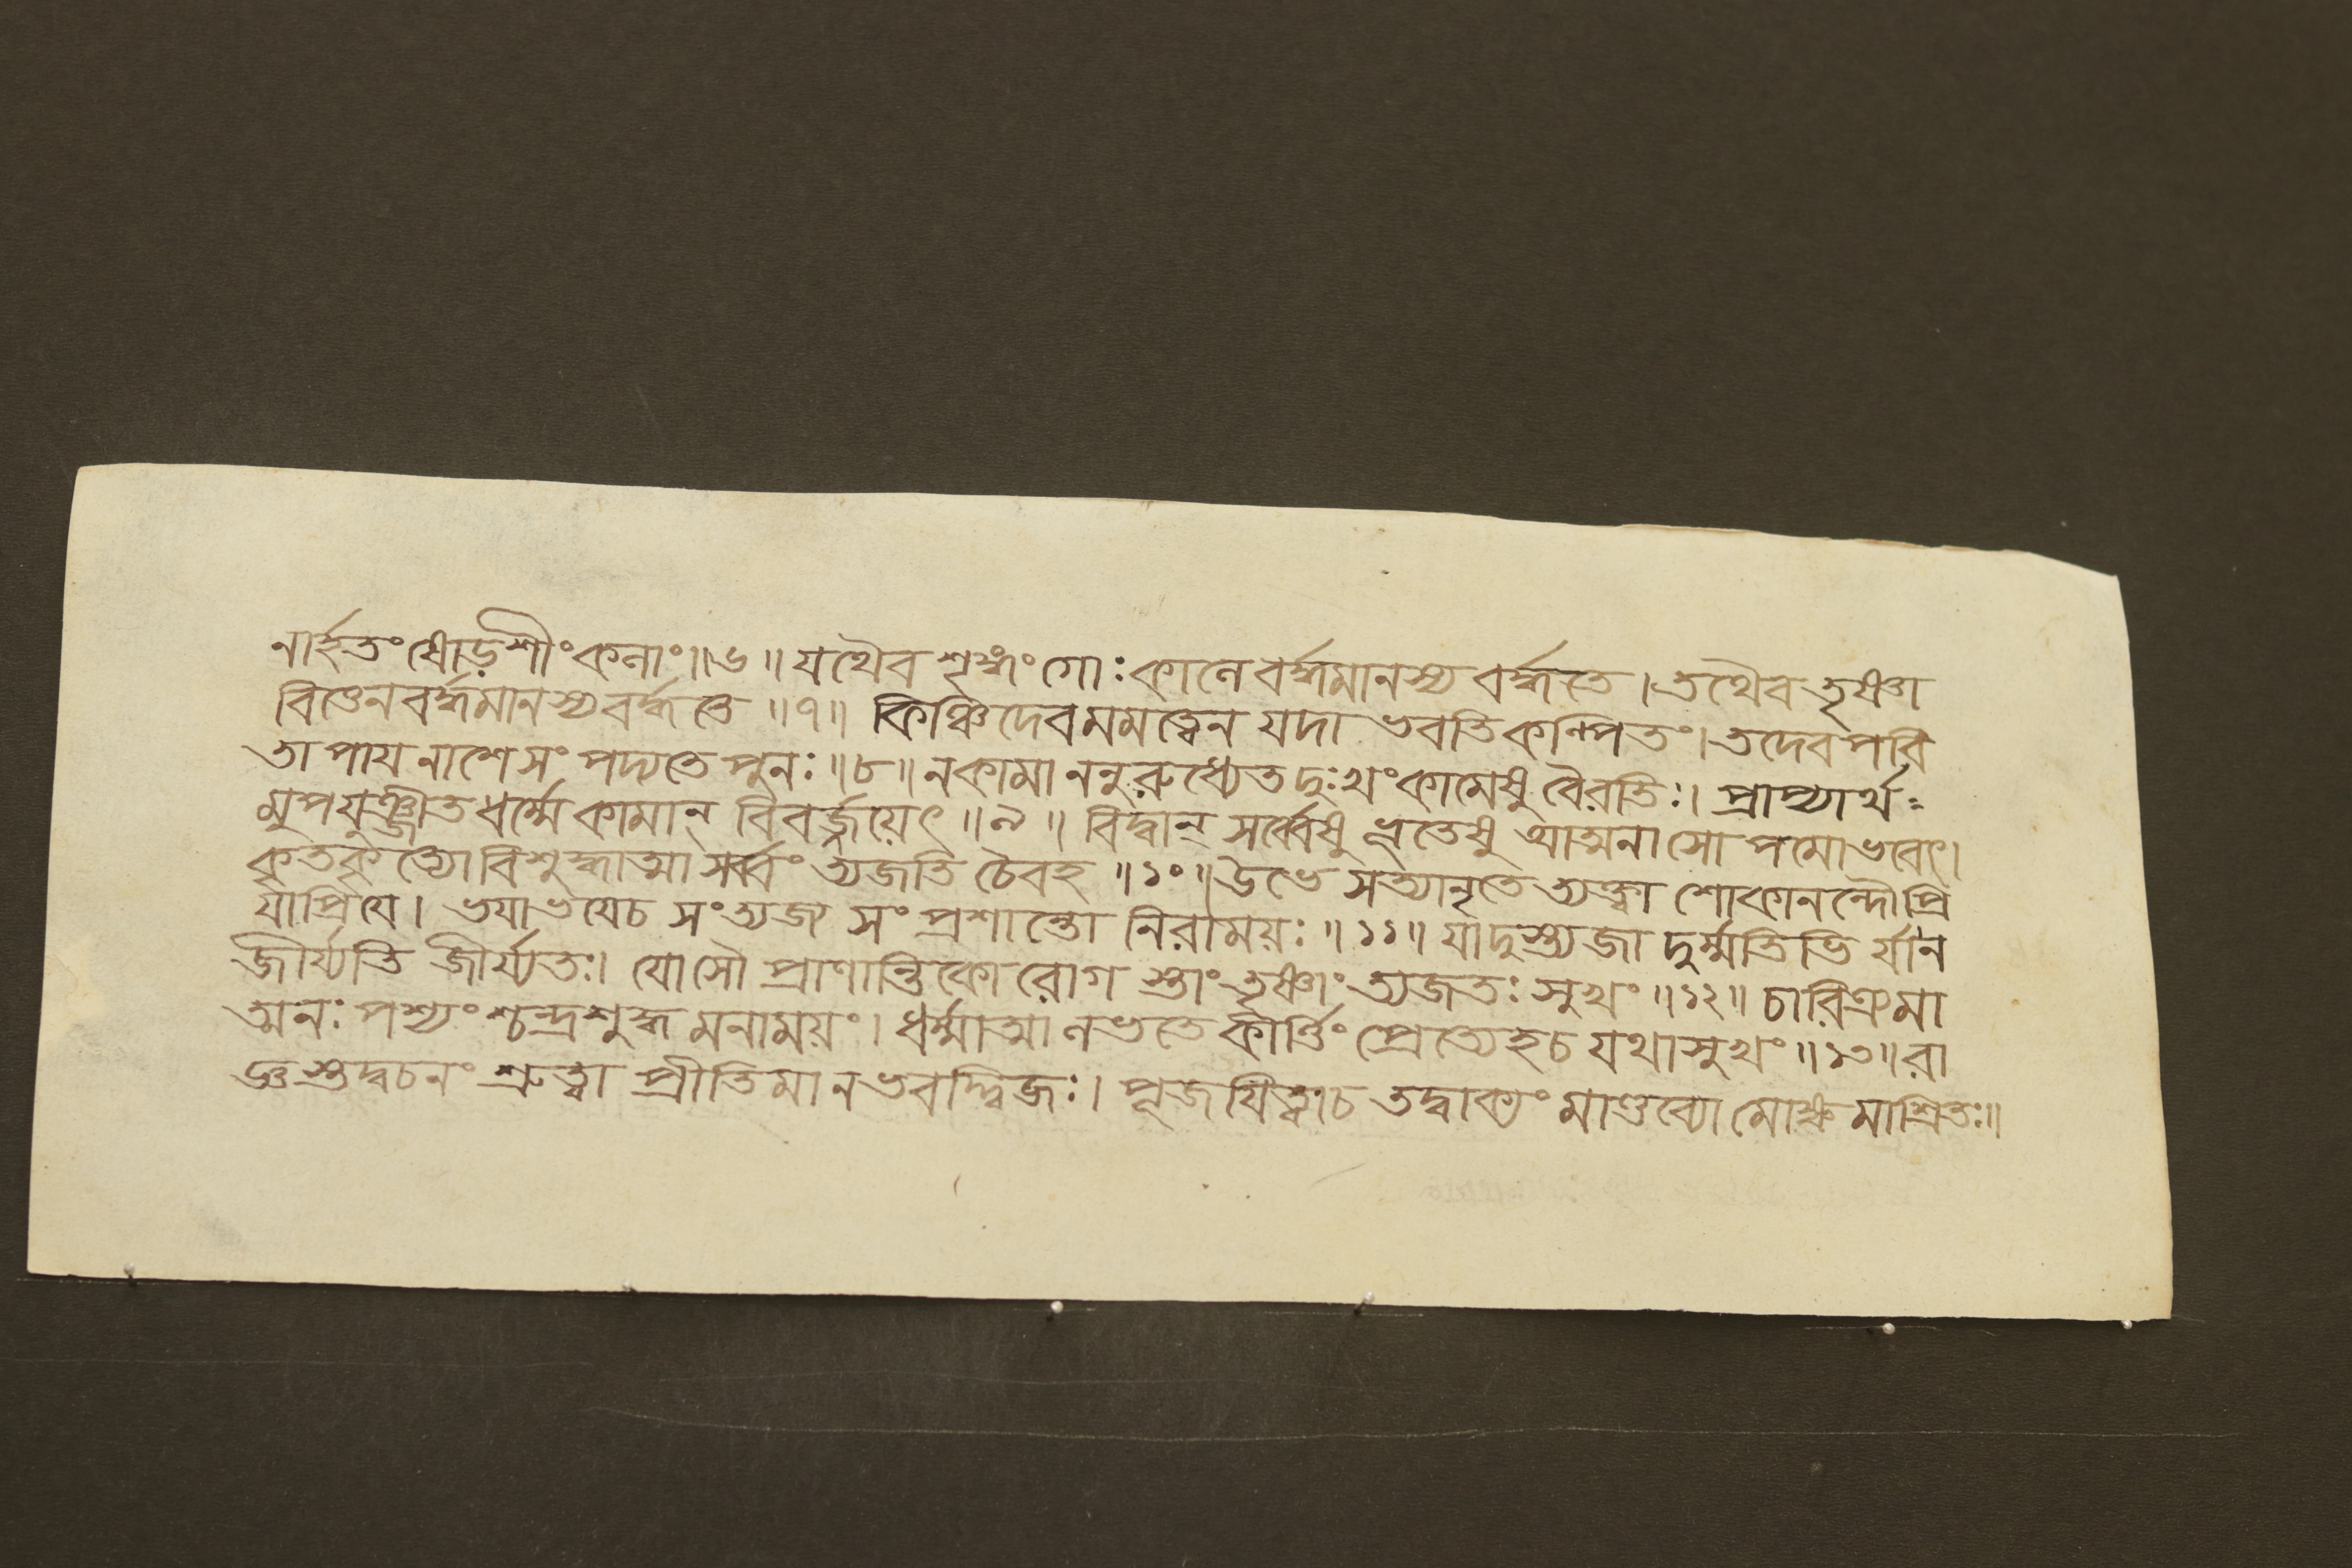 নার্হতঃ ষোড়শীং কলাং॥৬॥ যথৈব শৃঙ্গং গোঃ কালে বর্দ্ধমানস্য বর্দ্ধতে। তথৈব তৃষ্ণা
বিত্তেন বর্দ্ধমানস্য বর্দ্ধতে ॥৭॥ কিঞ্চিদেব মমত্বেন যদা ভবতি কল্পিতং। তদেব পরি
তাপায নাশে সংপদ্যতে পুনঃ॥৮॥ ন কামাননুরুধ্যেত দুঃখং কামেষু বৈরতিঃ। প্রাপ্যার্থ
মুপযুঞ্জীত ধর্ম্মে কামান্ বিবর্জ্জয়েৎ ॥৯॥ বিদ্বান্ সর্ব্বেষু ভূতেষু আত্মনা সোপমো ভবেৎ।
কৃতকৃত্যো বিশুদ্ধাত্মা সর্ব্বং ত্যজতি চৈবহ ॥১০॥ উভে সত্যানৃতে ত্যক্ত্বা শোকানন্দৌ প্রি
যাপ্রিযে। ভযাভযেচ সংত্যজ্য সংপ্রশান্তো নিরাময়ঃ॥১১॥ যা দুস্ত্যজা দুর্ম্মতিভি র্যা ন
জীর্য্যতি জীর্য্যতঃ। যোসৌ প্রাণান্তিকো রোগ স্তাং তৃষ্ণাং ত্যজতঃ সুখং॥১২॥ চারিত্রমা
ত্মনঃ পশ্যং শ্চন্দ্রশুদ্ধ মনাময়ং। ধর্ম্মাত্মা লভতে কীর্ত্তিং প্রেত্যেহচ যথাসুখং॥১৩॥ রা
জ্ঞস্তদ্বচনং শ্রুত্বা প্রীতিমানভবদ্দ্বিজঃ। পূজযিত্বাচ তদ্বাক্যং মাণ্ডব্যো মোক্ষমাশ্রিতঃ॥